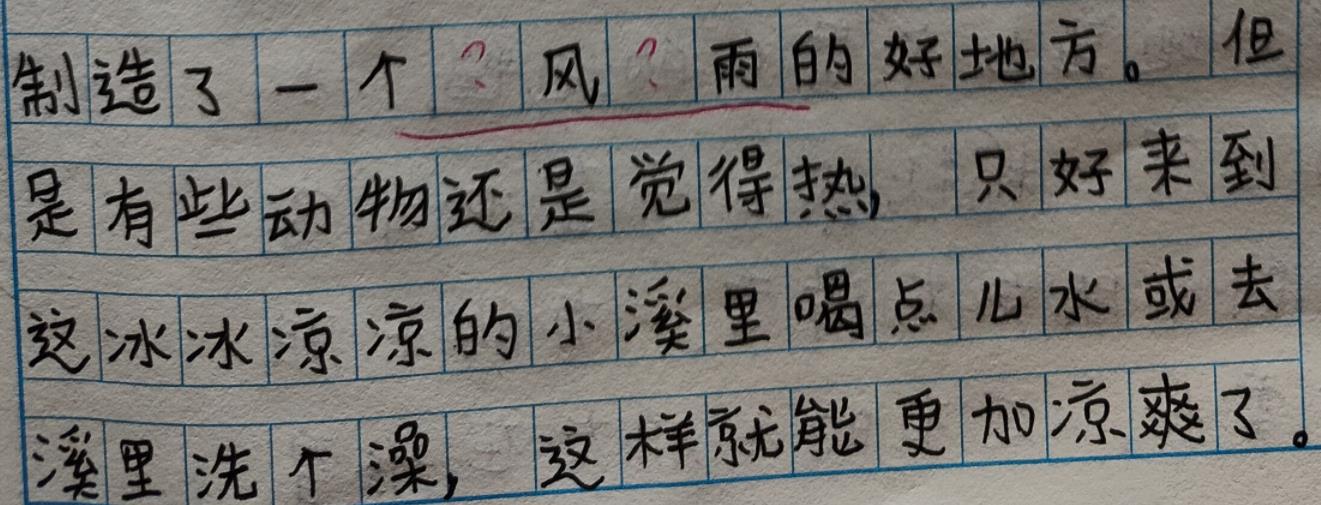 制造了一个?风?雨的好地方。但
是有些动物还是觉得热,只好来到
这冰冰凉凉的小溪里喝点儿水或去
溪里洗个澡,这样就能更加凉爽了。